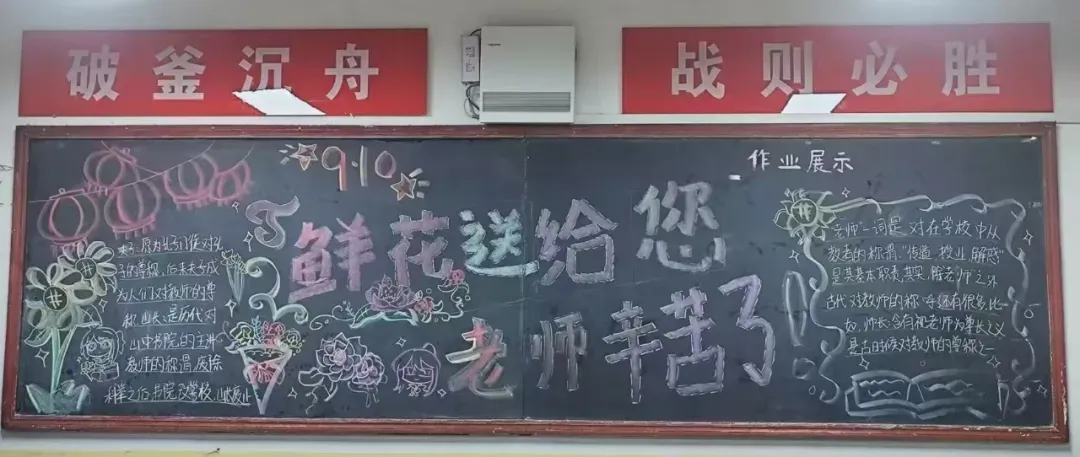 破釜沉舟
战则必胜
9.10
鲜花送给您
老师辛苦了
夫子:原为学子们怎对孔
子的尊称,后来夫子成
为人们对教师的尊
称.山长:是历代对
山中书院的主讲
教师的称谓.废除
科举之后书院改学校,山长废止
作业展示
老师一词是对在学校中从
教者的称谓,"传道 授业 解惑"
是其基本职责,其实,除老师之外
古代对教师的称呼还有很多,比
如,师长:含有视老师为尊长之义
是古时候对教师的尊称之一